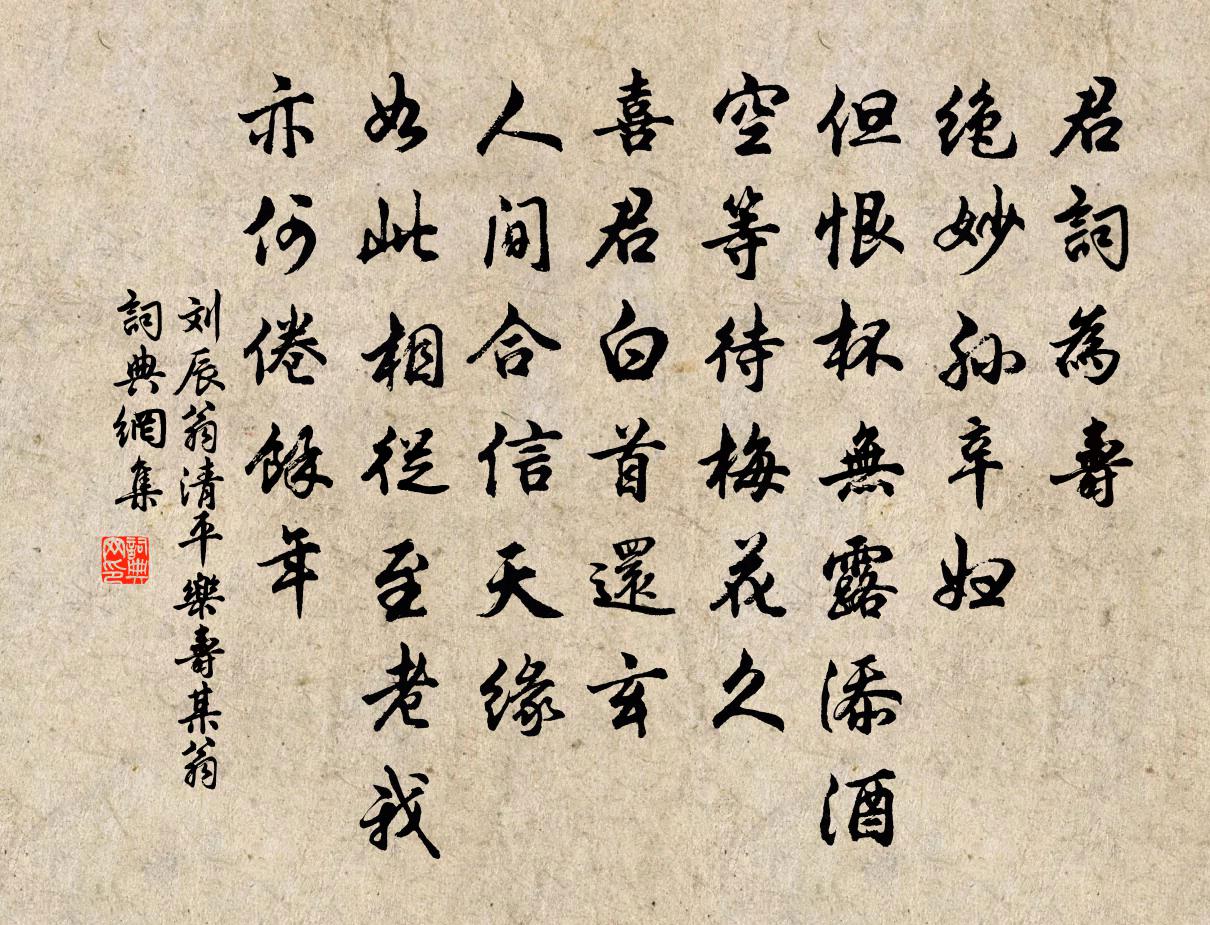 君詞為壽
絶妙孙辛妇
但恨杯無露添酒
空等待梅花久
喜君白首還玄
人间合信天缘
如此相從至老我
亦何倦餘年
刘辰翁清平樂壽某翁
詞典網集
詞典
网印